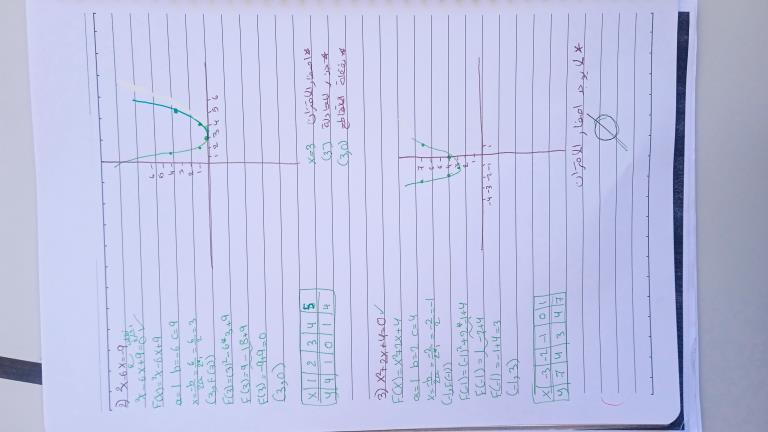 2) x²-6x=-9
x²-6x+9=0 ✓
F(x)=x²-6x+9
a=1 b=-6 c=9
x=-b/2a=6/2*1=6/2=3
(3,F(3))
F(3)=(3)²-6*3+9
F(3)=9-18+9
F(3)=-9+9=0
(3,0)
x 1 2 3 4 5
y 4 1 0 1 4
6
5
4
3
2
1
1 2 3 4 5 6
x=3 * اصفار الاقتران
{3} * جذر المعادلة
(3,0) * نقطة التقاطع
3) x²+2x+4=0 ✓
F(x)=x²+2x+4
a=1 b=2 c=4
x=-b/2a=-2/2*1=-2/2=-1
(-1,F(-1))
F(-1)=(-1)²+2*-1+4
F(-1)=1-2+4
F(-1)=-1+4=3
(-1,3)
x -3 -2 -1 0 1
y 7 4 3 4 7
7
6
5
4
3
2
1
-4 -3 -2 -1 1
* لا يوجد اصفار الاقتران
∅